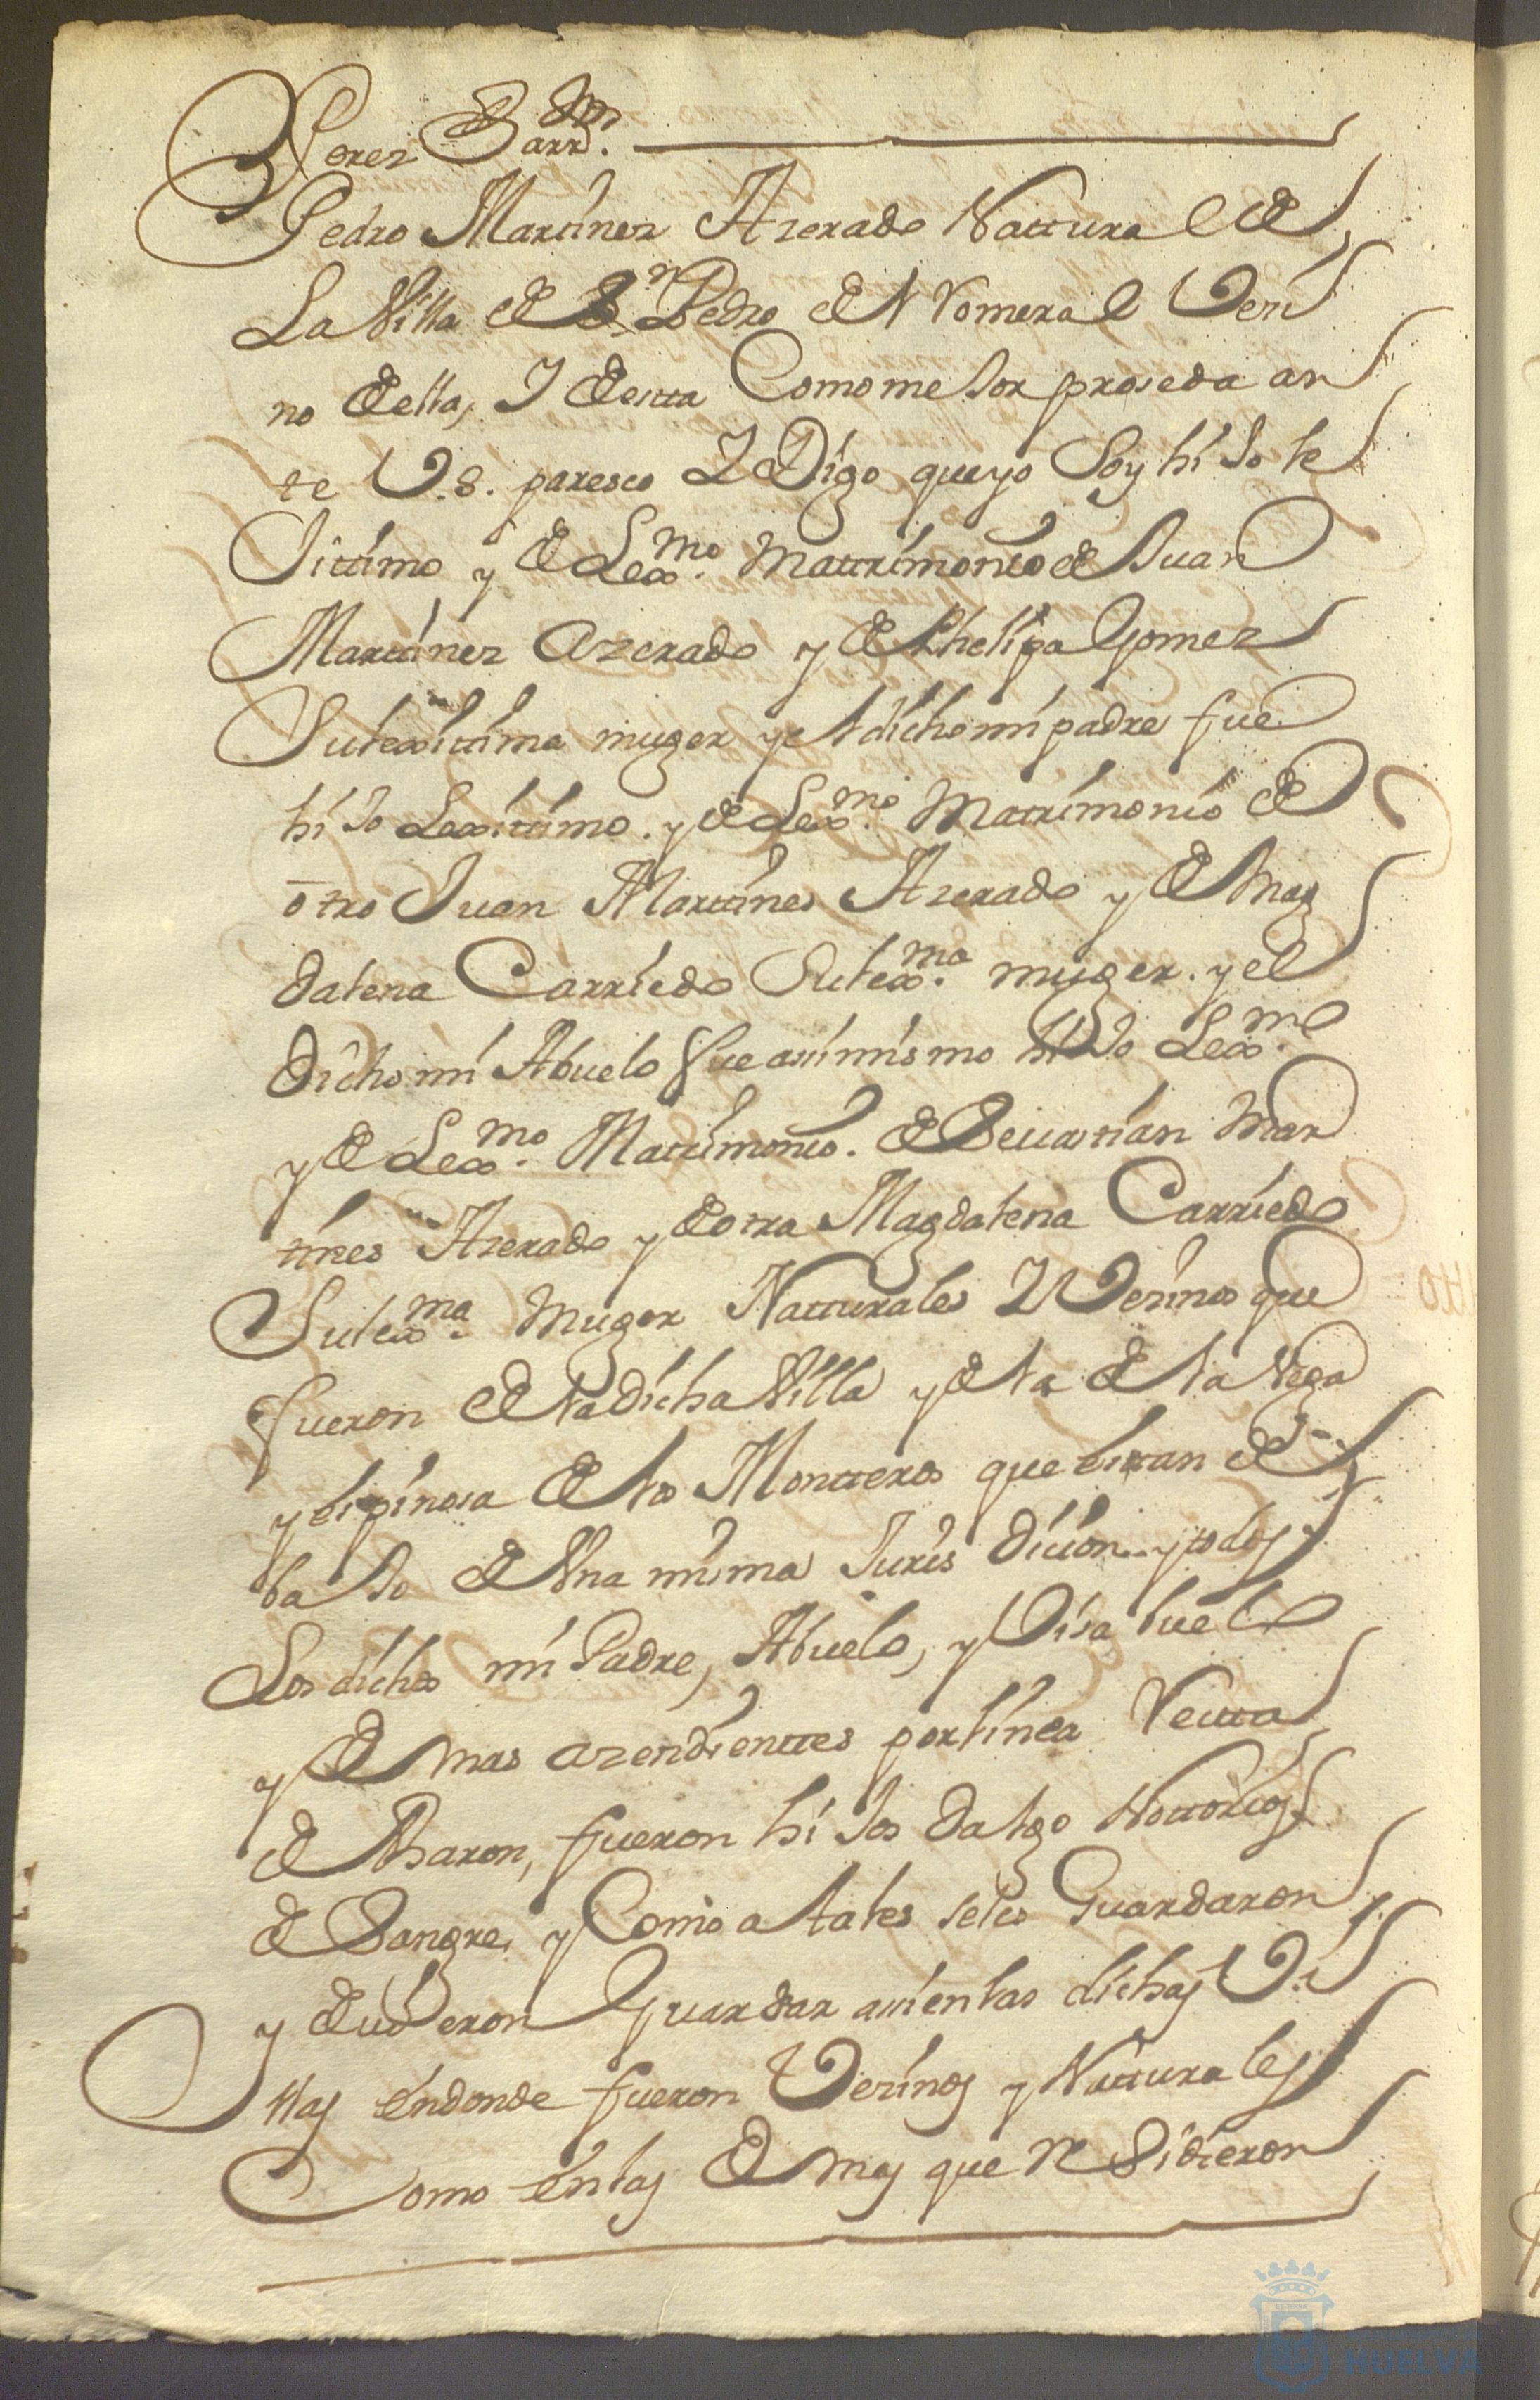 Perez Barr.on
Pedro Martinez Azerado Nattural de
La Villa de S.n Pedro del Romeral Vezi
no de ella, Y de esta Como me Jor proseda an
te V.S. paresco Y Digo que yo Soy hiJo le
Jittimo y de Lex.mo Mattrimonio de Juan
Martinez Azerado y de Phelipa Gomez
Su lexittima muger y el dicho mi padre fue
hiJo Lexittimo. y de Lex.mo Matrimonio de
otro Juan Martines Azerado y de Mag
dalena Carriedo Su lex.ma muger. y el
Dicho mi Abuelo fue assimismo hiJo Lex.mo
y de Lex.mo Matrimonio. de Sevastian Mar
tines Azerado y de otra Magdalena Carriedo
Su lex.ma Muger Natturales Y Vezinos que
fueron de la dicha Villa y de la de la Vega
y espinosa de los Montteros que estan de
baJo de Una misma Jurisdicion y todos
Los dichos mi Padre, Abuelo, y Visabuelo
y demas azendienttes por linea Rectta
de Baron, fueron hiJos dalgo Nottorios
de Sangre, y Como a tales se les Guardaron
y devieron Guardar assi en las dichas Vi
llas en donde fueron Vezinos y Natturales
Como en las demas que reSidieron
HUELVA